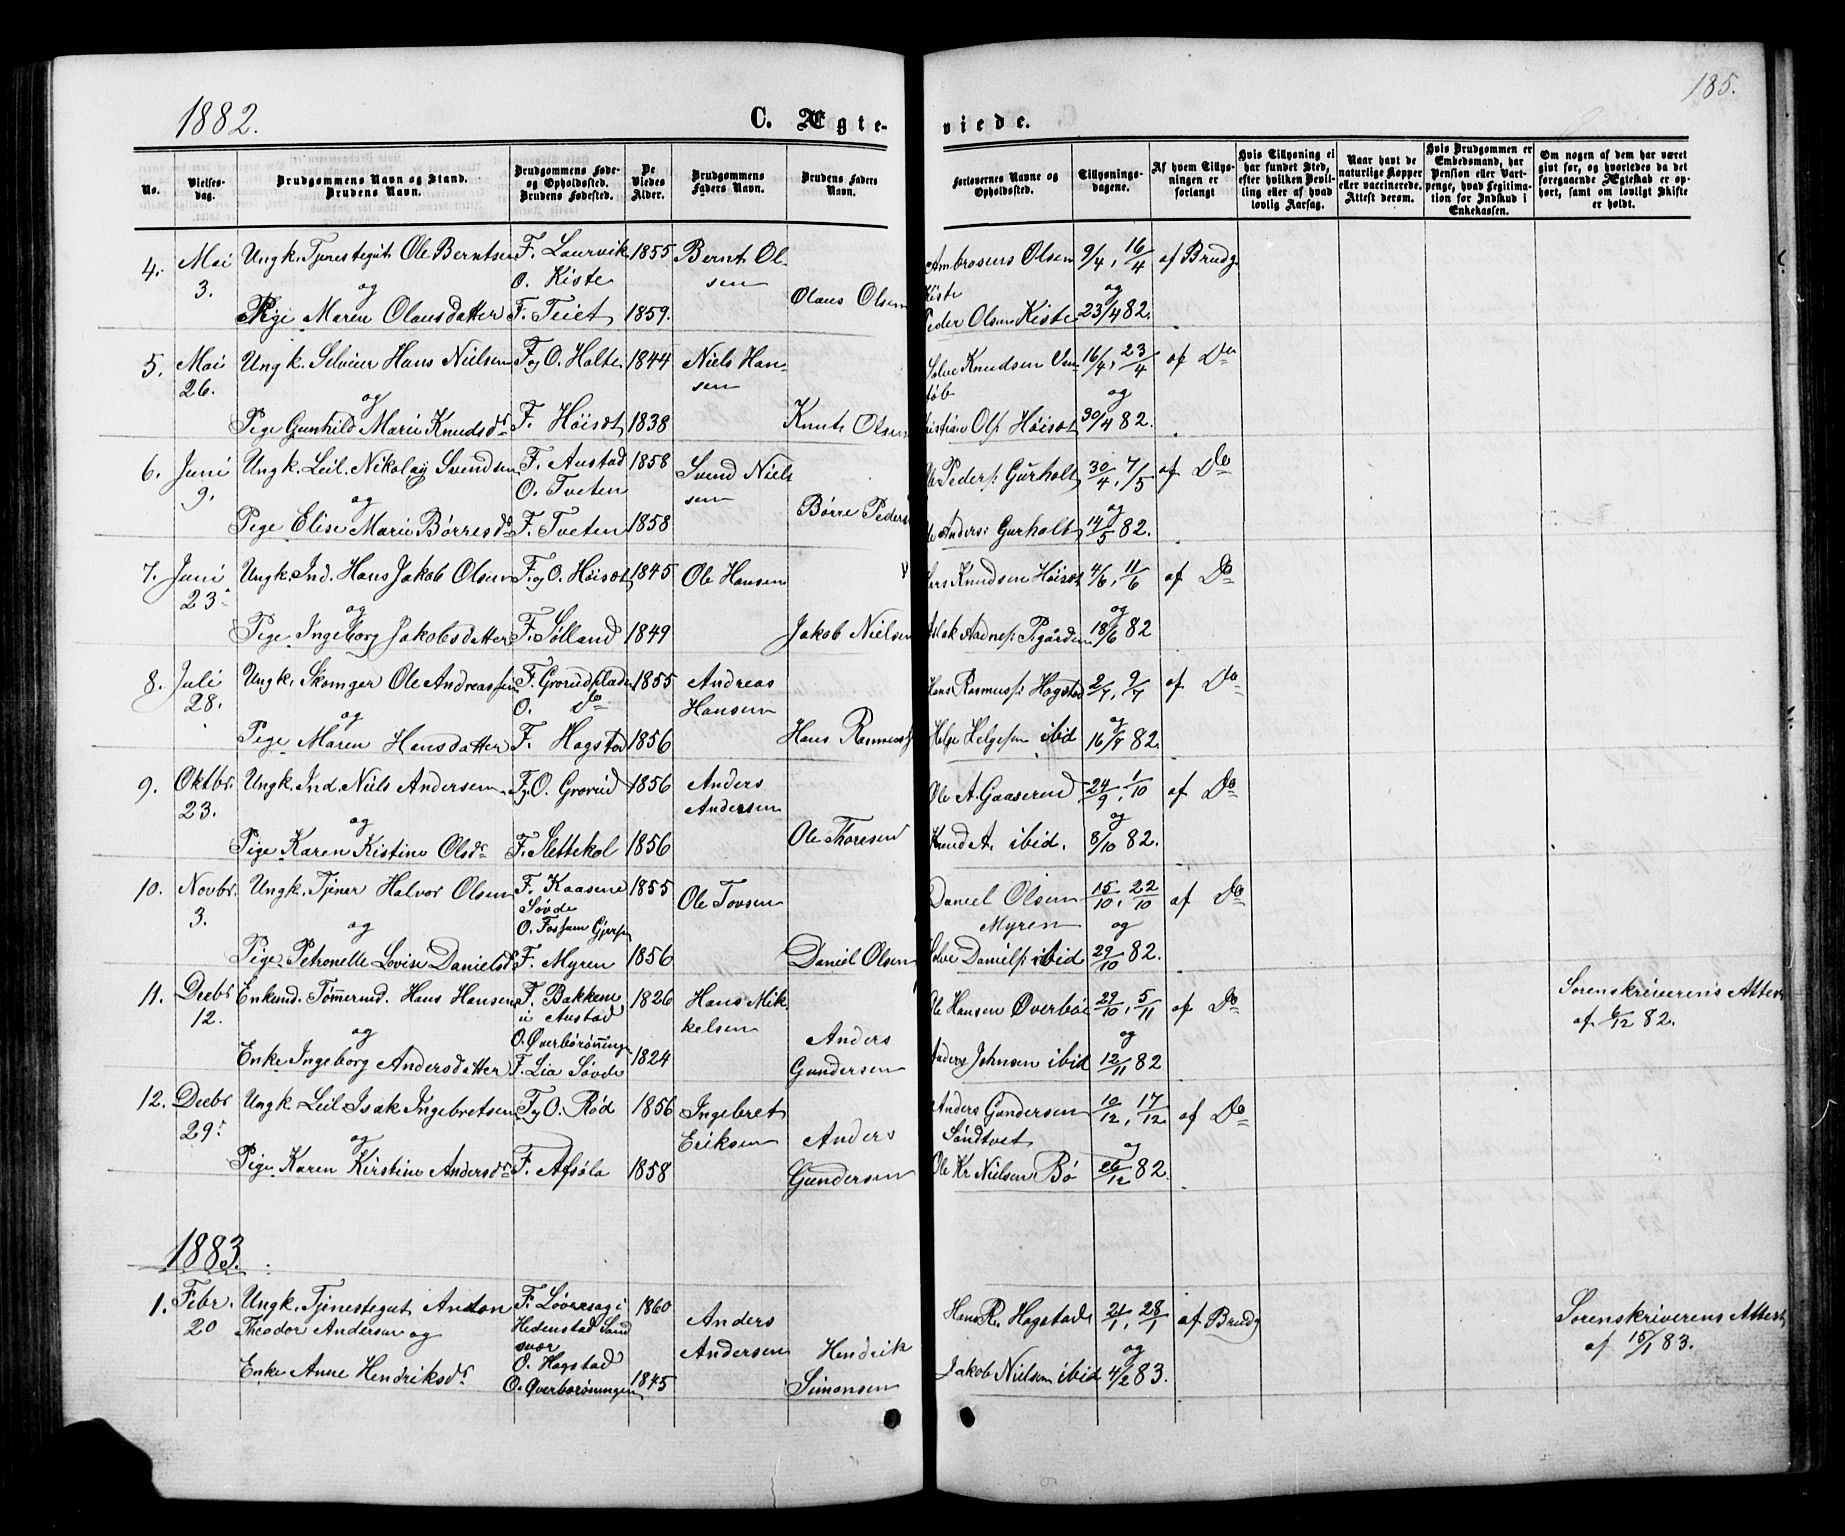 185.
1882.
C. Ægte-
viede.
No.
Vielses-
dag.
Brudgommens Navn og Stand.
Brudens Navn.
Brudgommens Føde-
og Opholdssted.
Brudens Fødested.
De
Viedes
Alder.
Brudgommens
Faders Navn.
Brudens Faders
Navn.
Forlovernes Navne og
Opholdssted.
Tillysnings-
dagene.
Af hvem Tillys-
ningen er
forlangt
Hvis Tillysning ei
har fundet Sted,
efter hvilken Bevil-
ling eller af hvad
lovlig Aarsag.
Naar havt de
naturlige Kopper
eller vaccinerede.
Attest derom.
Hvis Brudgommen er
Embedsmand, har
Pension eller Vart-
penge, hvad Legitima-
tion for Indskud i
Enkekassen.
Om nogen af dem har været
givt før, og hvorledes da det
foregaaende Ægteskab er op-
hørt, samt om lovligt Skifte
er holdt.
4. Mai 3. Ungk. Tjenestegut Ole Berntsen F. Laurvik 1855 Bernt Ol- Ambrosius Olsen 9/4, 16/4 af Brudg
O. Kiste sen Kiste
og Olaus Olsen og
Pige Maren Olausdatter F. Teiet 1859. Peder Olsen Kiste 23/4 82.
5. Mai 26. Ungk. Selveier Hans Nielsen F. og O. Holte 1844 Niels Han- Solve Knudsen 16/4, 23/4 af Do
sen
og Knut Olsen og
Pige Gunhild Marie Knudsdr F. Høisæt 1838 Ols. Høisæt 30/4 82.
6. Juni 9. Ungk. Leil. Nikolay Svendsen F. Austad 1858 Svend Niels Peders. Gurholt 30/4, 7/5 af Do
O. Tveten sen
og Børre Peders og
Pige Elise Marie Børresdr F. Tveten 1858 Anders. Gurholt 14/5 82.
7. Juni 23. Ungk. Ind. Hans Jakob Olsen F. og O. Høisæt 1845 Ole Hansen Knudsen Høisæt 4/6, 11/6 af Do
og og
Pige Ingeborg Jakobsdatter F. Sølland 1849 Jakob Nielsen Aslak Aadnes. 18/6 82
8. Juli 28. Ungk. Skomger Ole Andreassen F. Grorudpladsen 1855 Andreas Hans Rasmuss. Hogstad 2/7, 9/7 af Do
O. do Hansen
og og
Pige Maren Hansdatter F. Hogstad 1856 Hans Rasmuss. Helge Helgesen ibid 16/7 82.
9. Oktbr. 23. Ungk. Ind. Niels Andersen F. og O. Grorud 1856 Anders Ole A. Gaaserud 24/9, 1/10 af Do
Andersen
og Ole Thoresen og
Pige Karen Kistine Olsdr F. Slettekol 1856 Knud A. ibid. 8/10 82.
10. Novbr. 3. Ungk. Tjener Halvor Olsen F. Kaasene 1855 Ole Tovsen Daniel Olsen 15/10, 22/10 af Do
Søvde Myren
og O. Fossum Gjerpen og
Pige Petronelle Lovise Danielsdr F. Myren 1856 Daniel Olsen Solve Daniels. ibid 29/10 82.
11. Decbr 12. Enkemd. Tømmermd. Hans Hansen F. Bakkene 1826 Hans Mik- Ole Hansen Øverbø 29/10, 5/11 af Do Sorenskriverens Attest
u Austad kelsen af 6/12 82.
og O. Øverbørønningen Anders og
Enke Ingeborg Andersdatter F. Lia Søvde 1824 Gundersen Anders Johnsen ibid 12/11 82
12. Decbr 29. Ungk Leil Isak Ingebretsen F. og O. Rød 1856 Ingebret Anders Gundersen 10/12, 17/12 af Do
Eriksen Søndtvet
og Anders og
Pige Karen Kirstine Andersdr F. Afsøla 1858 Gundersen Ole Kr Nielsen Bø 26/12 82.
1883.
1. Febr. 20 Ungk. Tjenestegut Anton F. Løversag i 1860 Anders Hans R. Hogstad 21/1, 28/1 af Brudg Sorenskriverens Attest
Theodor Andersen og Hedenstad Sand Andersen af 15/1 83.
svær og
O. Hogstad Hendrik
Enke Anne Hendriksdr O. Øverbørønningen 1845 Simonsen Jakob Nielsen ibid 4/2 83.